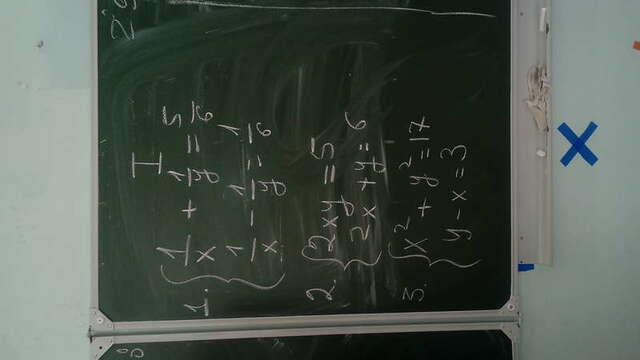 I
1. { 1/x + 1/y = 5/6
1/x - 1/y = 1/6
2. { 2xy = 5
2x + y = 6
3. { x² + y² = 17
y - x = 3